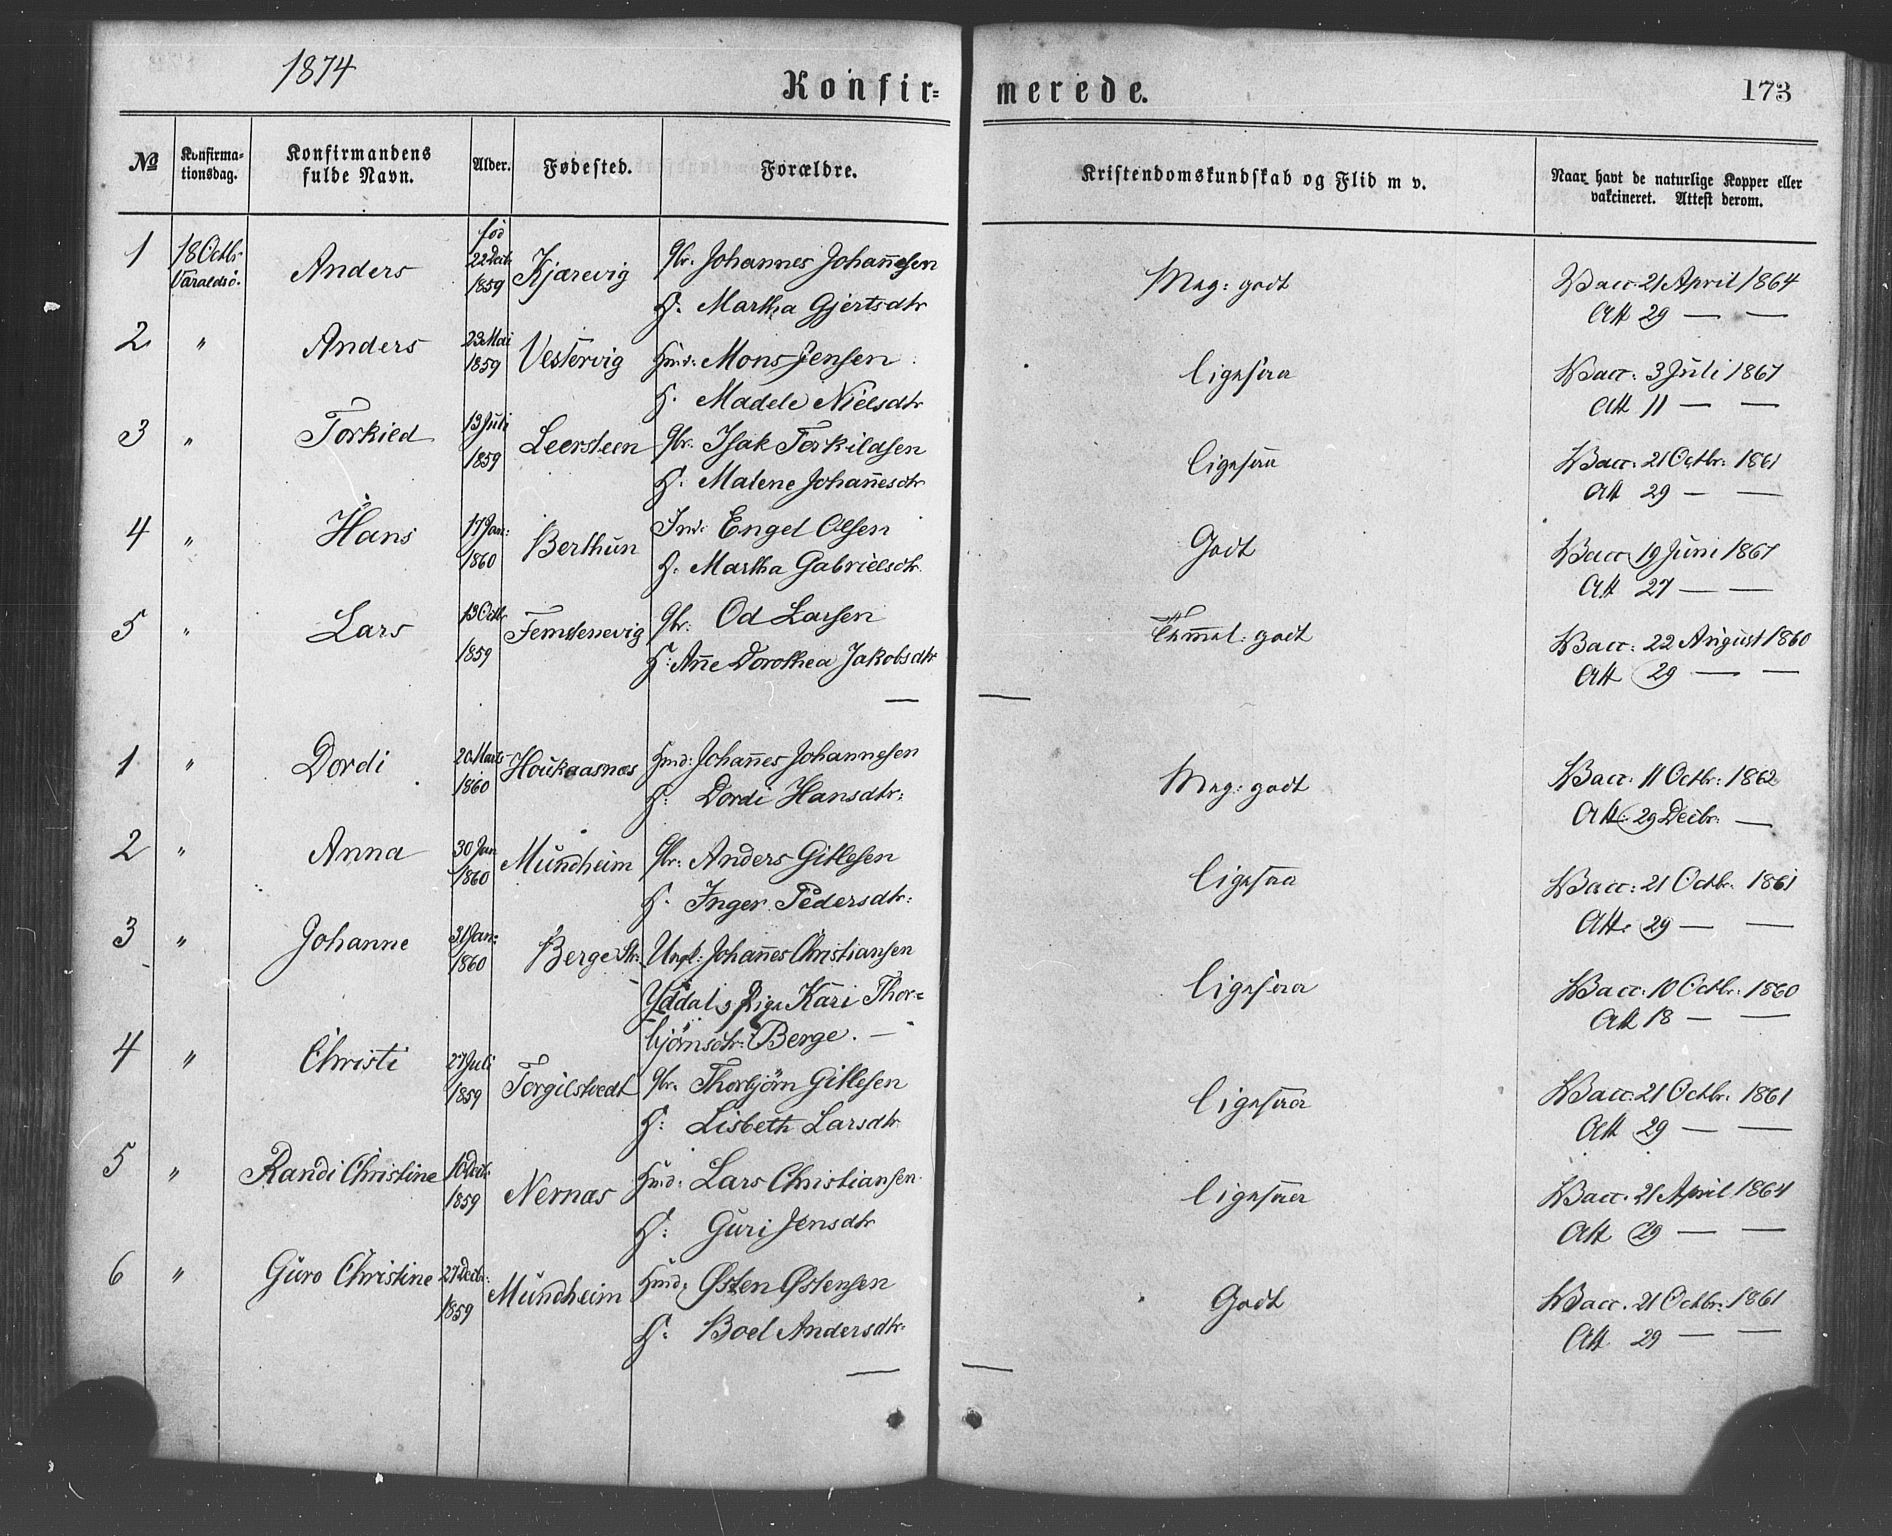 1874
Konfir= merede.
173
№ Konfirma-tionsdag. Konfirmandens fulde Navn. Alder. Fødested. Forældre. Kristendomskundskab og Flid m v. Naar havt de naturlige Kopper eller vakcineret. Attest derom.
1 18 Octbr Varaldsö. Anders fød 22 Decb. 1859 Kjærevig Gbr. Johannes Johañesen Meg: godt Vacc. 21 April 1864
H. Martha Gjertsdtr Att 29 — —
2 " Anders 23 Mai 1859 Vestervig Hmd: Mons Jensen ligesaa Vacc: 3 Juli 1867
H. Madele Nielsdtr Att 11 — —
3 " Torkied 13 Juli 1859 Leersteen Gbr. Isak Torkildsen ligesaa Vacc: 21 Octbr: 1861
H: Malene Johañesdtr Att 29 — —
4 " Hans 17 Jan: 1860 Berthun Ind: Engel Olsen Godt Vacc 19 Juni 1867
H. Martha Gabrielsdtr. Att 27 — —
5 " Lars 13 Octb 1859 Femstenevig Gbr: Od Larsen Tem̄el: godt Vacc: 22 August 1860
H: Añe Dorothea Jakobsdtr Att 29 — —
— —
1 " Dordi 20 Marts 1860 Houkaasnæs Hmd: Johañes Johannesen Meg: godt Vacc: 11 Octbr: 1862
H: Dordi Hansdtr: Att: 29 Decbr: —
2 " Anna 30 Jan 1860 Mundheim Gbr: Anders Gitlesen ligesaa Vacc: 21 Octbr: 1861
H. Inger Pedersdtr: Att: 29 — —
3 " Johanne 31 Jan: 1860 Berge Str: Ungk: Johañes Christiansen ligesaa Vacc: 10 Octbr: 1860
Yddal, Pige Kari Thor= Att 18 — —
bjørnsdtr: Berge. —
4 " Christi 27 Juli 1859 Torgilstvedt Gbr. Thorbjörn Gitlesen ligesaa Vacc: 21 Octbr: 1861
H: Lisbeth Larsdtr Att 29 — —
5 " Randi Christine 10 Decb. 1859 Nernæs Hmd: Lars Christiansen ligesaa Vacc. 21 April 1864
H: Guri Jensdtr Att 29 — —
6 " Guro Christine 27 Decbr: 1859 Mundheim Hmd: Østen Østensen Godt Vacc. 21 Octbr: 1861
H. Boel Andersdtr. Att 29 — —
— —